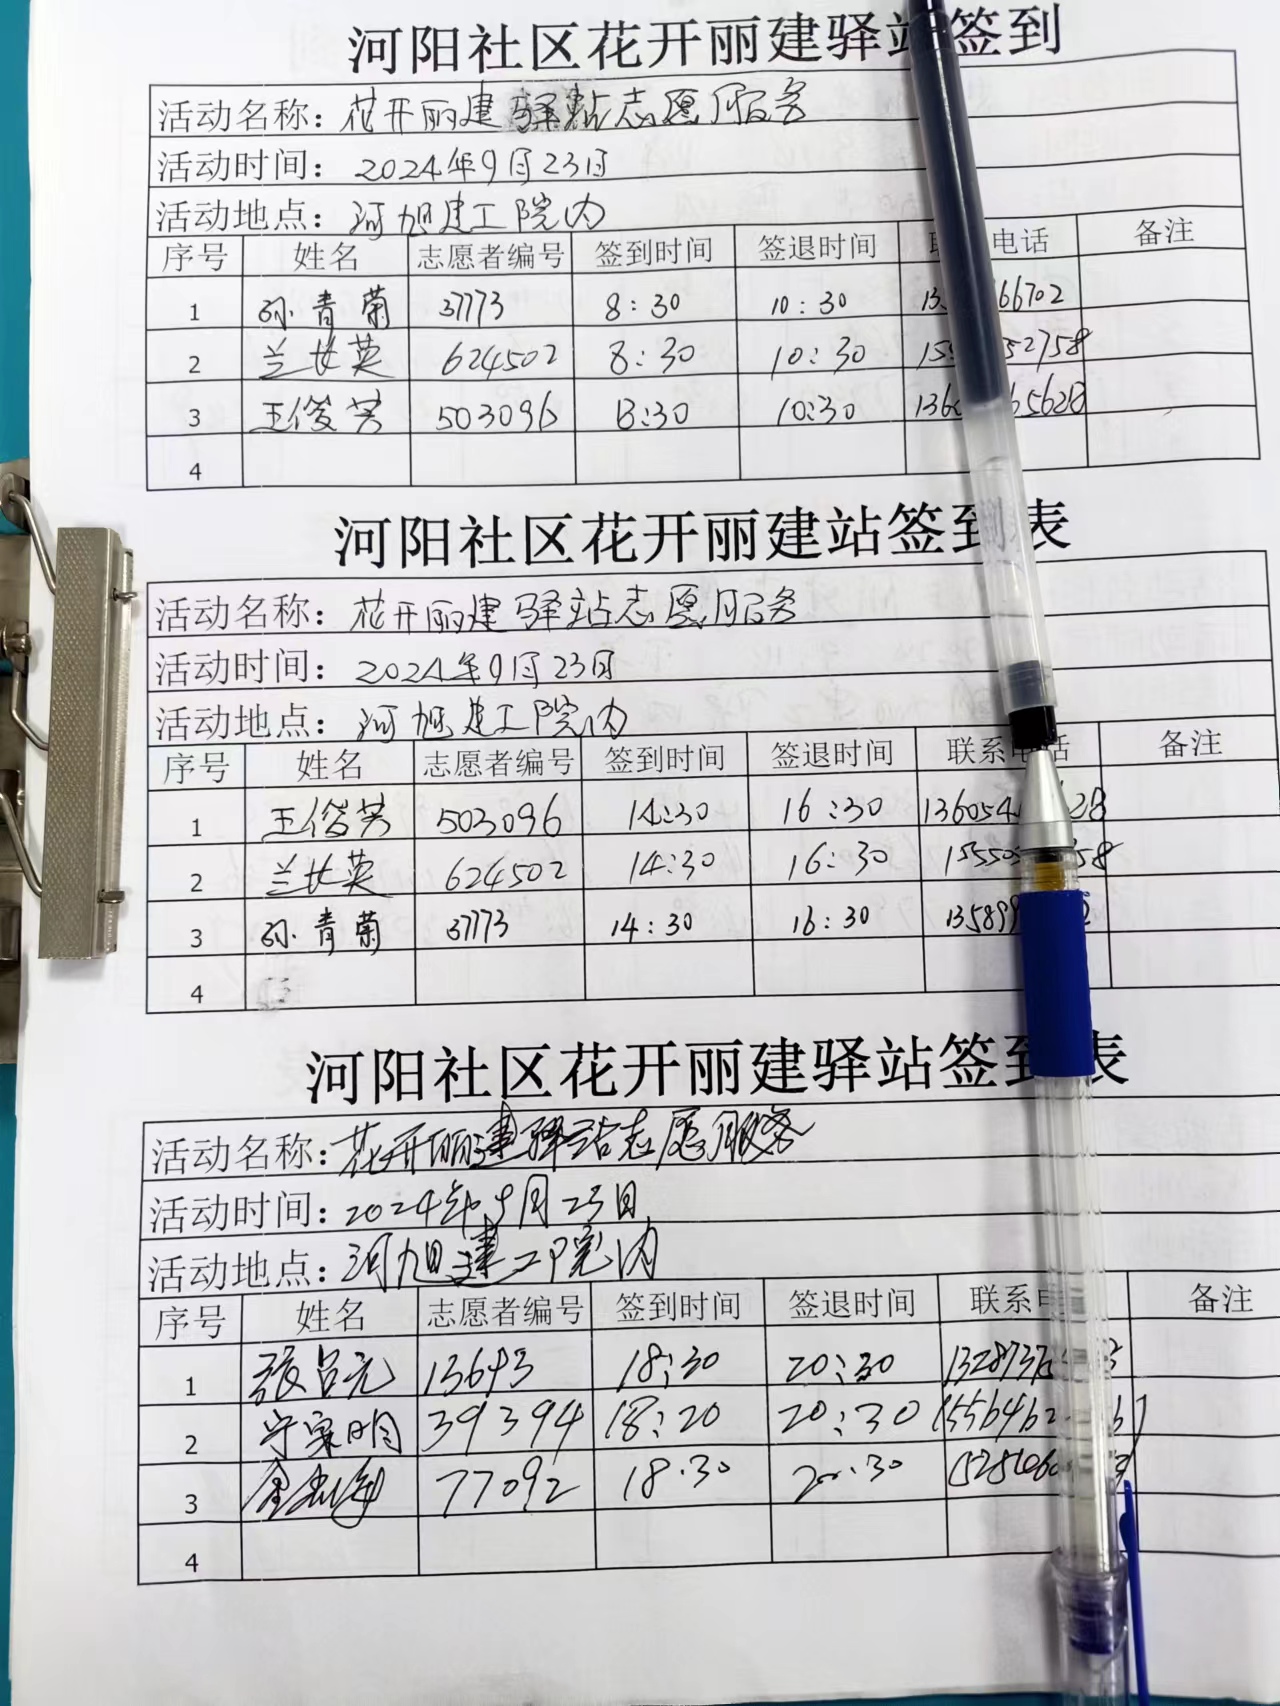 河阳社区花开丽建驿站签到
活动名称：花开丽建驿站志愿服务
活动时间：2024年9月23日
活动地点：河旭建工院内
序号 姓名 志愿者编号 签到时间 签退时间 电话 备注
1 孙青菊 37773 8:30 10:30 66702
2 兰长英 624502 8:30 10:30 52758
3 王俊芳 503096 8:30 10:30 5628
4
河阳社区花开丽建站签到表
活动名称：花开丽建驿站志愿服务
活动时间：2024年9月23日
活动地点：河旭建工院内
序号 姓名 志愿者编号 签到时间 签退时间 联系电话 备注
1 王俊芳 503096 14:30 16:30 136054 28
2 兰长英 624502 14:30 16:30 15550 58
3 孙青菊 37773 14:30 16:30 13589
4
河阳社区花开丽建驿站签到表
活动名称：花开丽建驿站志愿服务
活动时间：2024年9月23日
活动地点：河旭建工院内
序号 姓名 志愿者编号 签到时间 签退时间 联系电 备注
1 张吕元 13693 18:30 20:30 132873
2 39394 18:20 20:30 1556462
3 77092 18:30 20:30
4